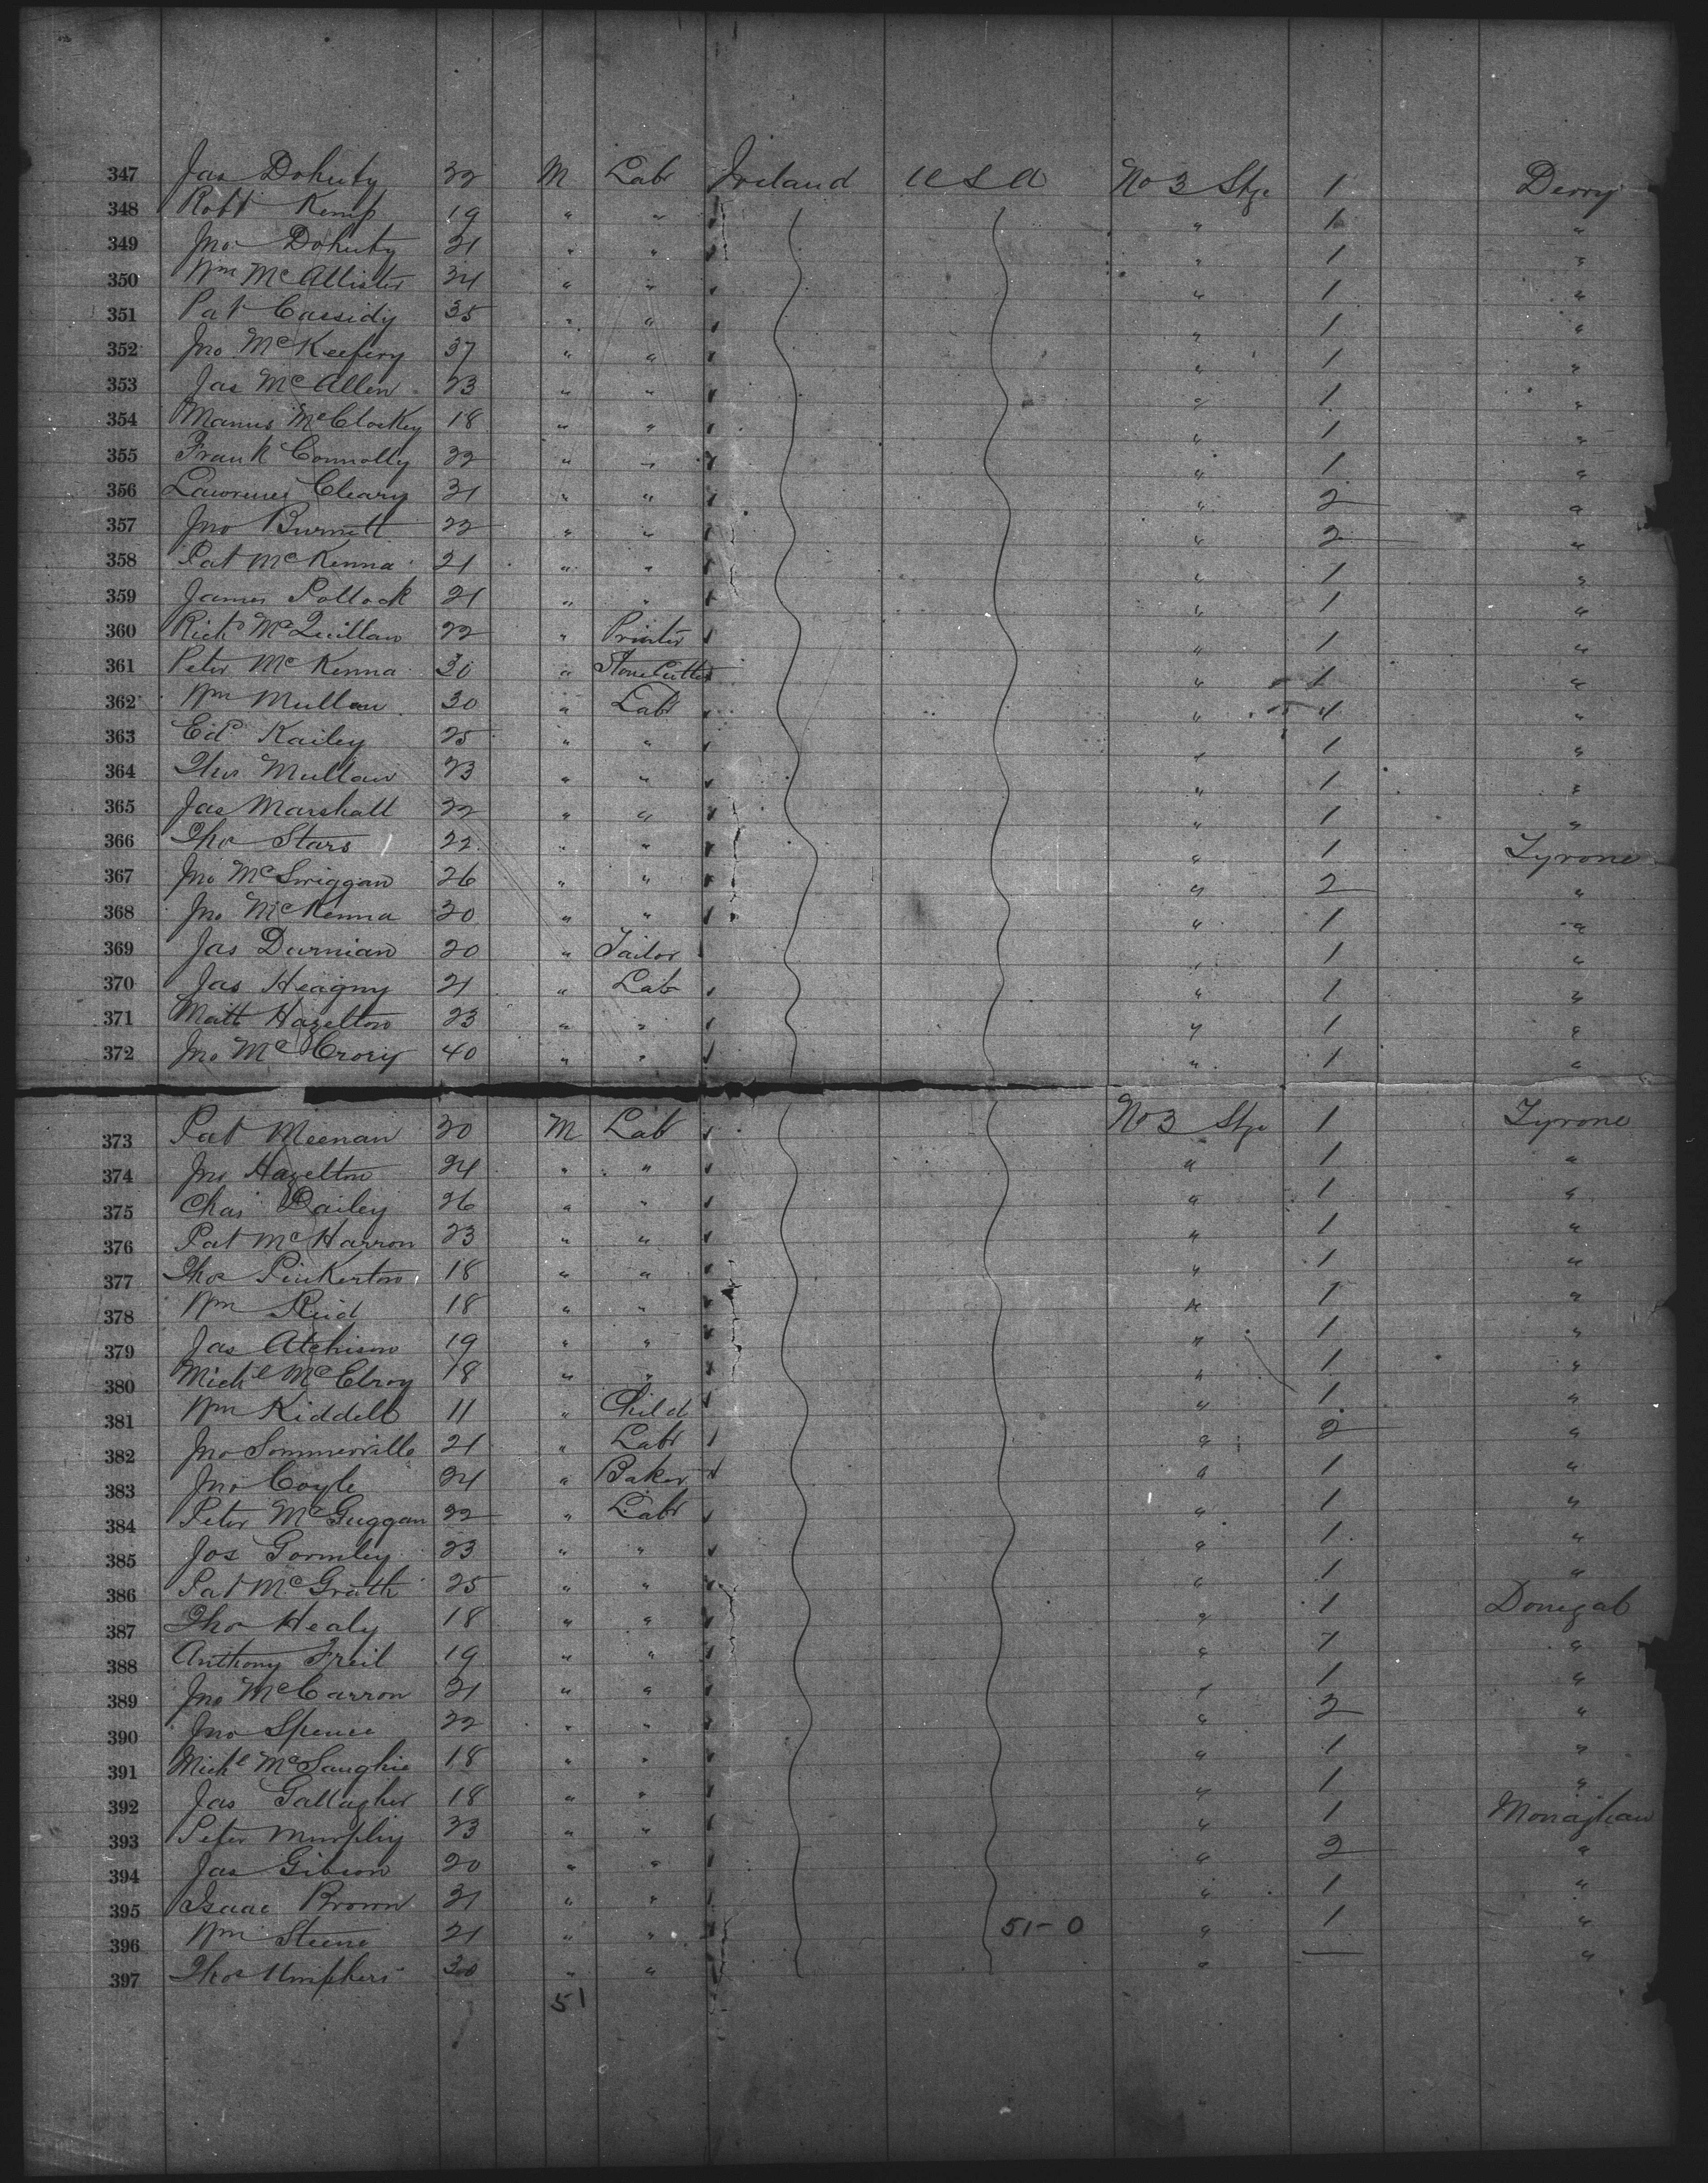 347 Jas Doherty 22 M Labr Ireland U S A No 3 Stge 1 Derry
348 Robt Kemp 19 " " " 1 "
349 Jno Doherty 21 " " " 1 "
350 Wm McAllister 24 " " " 1 "
351 Pat Cassidy 35 " " " 1 "
352 Jno McKeefery 37 " " " 1 "
353 Jas McAllen 23 " " " 1 "
354 Manus McCloskey 18 " " " 1 "
355 Frank Connolly 22 " " " 1 "
356 Lawrence Cleary 21 " " " 2 "
357 Jno Burnett 22 " " " 2 "
358 Pat McKenna 21 " " " 1 "
359 James Pollock 21 " " " 1 "
360 Richd McQuillan 22 " Printer " 1 "
361 Peter McKenna 30 " Stone Cutter " 1 "
362 Wm Mullan 30 " Labr " 1 "
363 Ed Kailey 25 " " " 1 "
364 Thos Mullan 23 " " " 1 "
365 Jas Marshall 22 " " " 1 "
366 Thos Stars 22 " " " 1 Tyrone
367 Jno McSwiggan 26 " " " 2 "
368 Jno McKenna 20 " " " 1 "
369 Jas Durnian 20 " Tailor " 1 "
370 Jas Heagny 21 " Lab " 1 "
371 Matt Hazelton 23 " " " 1 "
372 Jno McCrory 40 " " " 1 "
373 Pat Meenan 20 M Lab No 3 Stge 1 Tyrone
374 Jno Hazelton 24 " " " 1 "
375 Chas Dailey 26 " " " 1 "
376 Pat McHarron 23 " " " 1 "
377 Thos Pinkerton 18 " " " 1 "
378 Wm Reid 18 " " " 1 "
379 Jas Atchison 19 " " " 1 "
380 Michl McElroy 18 " " " 1 "
381 Wm Kiddell 11 " Child " 1 "
382 Jno Sommerville 21 " Labr " 2 "
383 Jno Coyle 24 " Baker " 1 "
384 Peter McGuggan 22 " Labr " 1 "
385 Jos Gormley 23 " " " 1 "
386 Pat McGrath 25 " " " 1 "
387 Thos Healy 18 " " " 1 Donegal
388 Anthony Freil 19 " " " 1 "
389 Jno McCarron 21 " " " 1 "
390 Jno Spence 22 " " " 2 "
391 Michl 18 " " " 1 "
392 Jas Gallagher 18 " " " 1 "
393 Peter Murphy 23 " " " 1 Monaghan
394 Jas Gibson 20 " " " 2 "
395 Isaac Brown 21 " " " 1 "
396 Wm Steene 21 " " 51-0 " 1 "
397 Thos Umphers 30 " " " — "
51